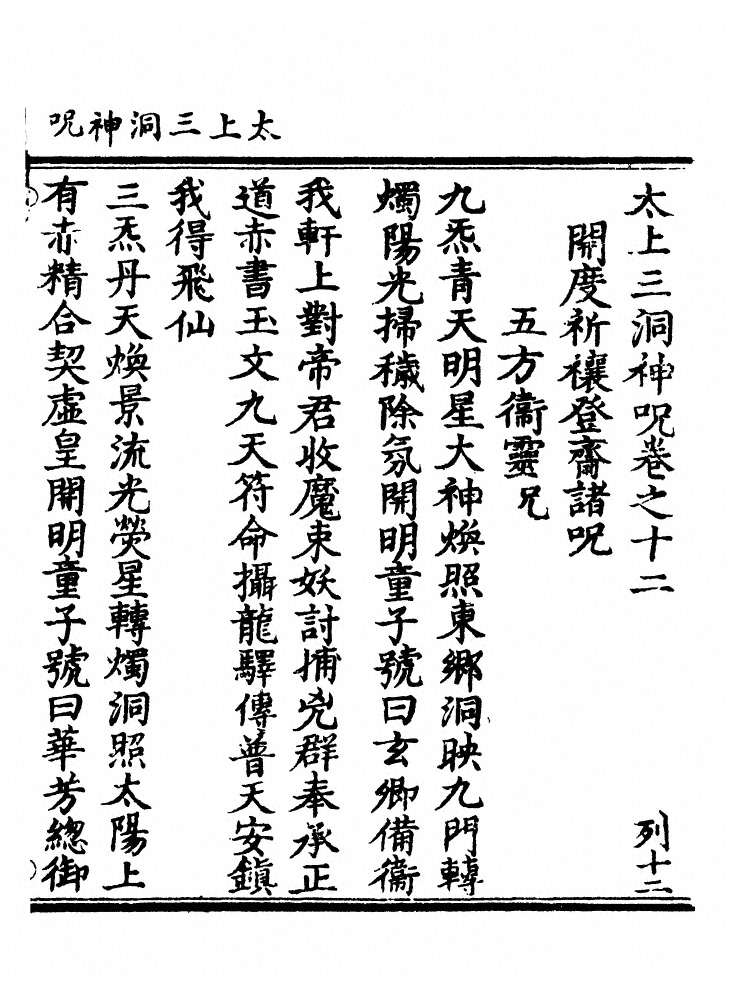 太上三洞神呪
太上三洞神呪卷之十二
列十二
開度祈禳登齋諸呪
五方衞靈咒
九炁青天明星大神煥照東鄉洞映九門轉
燭陽光掃穢除氛開明童子號曰玄卿備衞
我軒上對帝君收魔束妖討捕兇群奉承正
道赤書玉文九天符命攝龍驛傳普天安鎮
我得飛仙
三炁丹天煥景流光熒星轉燭洞照太陽上
有赤精合契虛皇開明童子號曰華芳總御